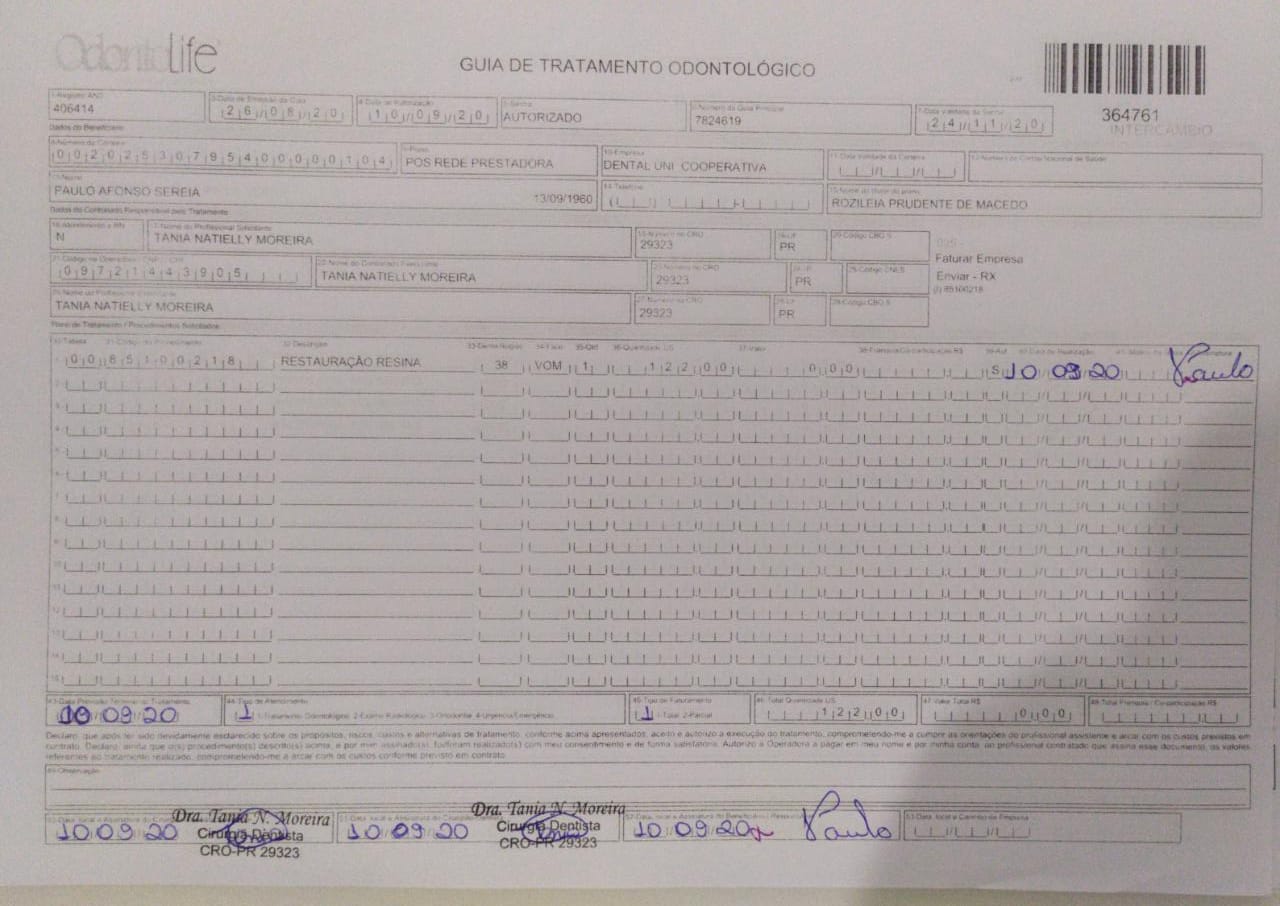 OdontoLife
GUIA DE TRATAMENTO ODONTOLÓGICO
364761
INTERCÂMBIO
1-Registro ANS
406414
3-Data de Emissão da Guia
26/08/20
4-Data de Autorização
10/09/20
5-Senha
AUTORIZADO
6-Número da Guia Principal
7824619
7-Data Validade da Senha
24/11/20
Dados do Beneficiário
8-Número da Carteira
00202530795400000104
9-Plano
POS REDE PRESTADORA
10-Empresa
DENTAL UNI COOPERATIVA
11-Data Validade da Carteira
12-Número do Cartão Nacional de Saúde
13-Nome
PAULO AFONSO SEREIA 13/09/1960
14-Telefone
15-Nome do titular do plano
ROZILEIA PRUDENTE DE MACEDO
Dados do Contratado Responsável pelo Tratamento
16-Atendimento a RN
N
17-Nome do Profissional Solicitante
TANIA NATIELLY MOREIRA
18-Número no CRO
29323
19-UF
PR
20-Código CBO S
Faturar Empresa
Enviar - RX
(I) 85100218
21-Código na Operadora / CNPJ / CPF
09721443905
22-Nome do Contratado Executante
TANIA NATIELLY MOREIRA
23-Número no CRO
29323
24-UF
PR
25-Código CNES
26-Nome do Profissional Executante
TANIA NATIELLY MOREIRA
27-Número no CRO
29323
28-UF
PR
29-Código CBO S
Plano de Tratamento / Procedimentos Solicitados
30-Tabela 31-Código do Procedimento 32-Descrição 33-Dente/Região 34-Face 35-Qtd 36-Quantidade US 37-Valor 38-Franquia/Co-participação R$ 39-Aut 40-Data de Realização
00 85100218 RESTAURAÇÃO RESINA 38 VOM 1 122 00 0 00 S 10 09 20 Paulo
43-Data Previsão Término do Tratamento
10 09 20
44-Tipo de Atendimento
1 1-Tratamento Odontológico 2-Exame Radiológico 3-Ortodontia 4-Urgência/Emergência
45-Tipo de Faturamento
1 1-Total 2-Parcial
46-Total Quantidade US
122 00
47-Valor Total R$
0 00
48-Total Franquia / Co-participação R$
Declaro, que após ter sido devidamente esclarecido sobre os propósitos, riscos, custos e alternativas de tratamento, conforme acima apresentados, aceito e autorizo a execução do tratamento, comprometendo-me a cumprir as orientações do profissional assistente e arcar com os custos previstos em
contrato. Declaro, ainda que o(s) procedimento(s) descrito(s) acima, e por mim assinado(s), foi/foram realizado(s) com meu consentimento e de forma satisfatória. Autorizo a Operadora a pagar em meu nome e por minha conta, ao profissional contratado que assina esse documento, os valores
referentes ao tratamento realizado, comprometendo-me a arcar com os custos conforme previsto em contrato.
49-Observação
10 09 20
Dra. Tania N. Moreira
Cirurgiã Dentista
CRO-PR 29323
10 09 20
Dra. Tania N. Moreira
Cirurgiã Dentista
CRO-PR 29323
10 09 20
Paulo
53-Data, local e Carimbo da Empresa